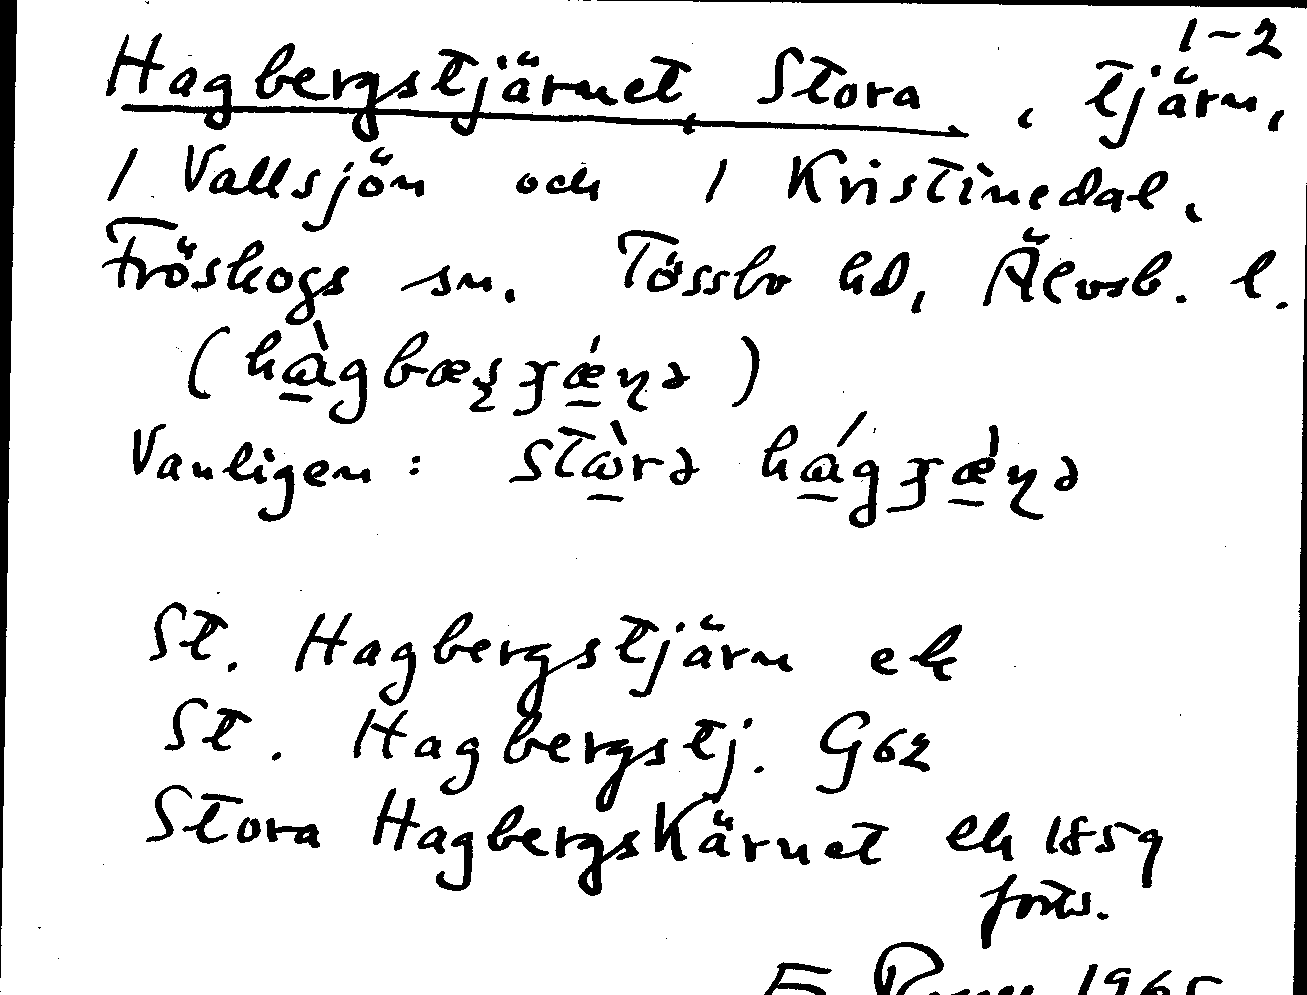 1-2
Hagbergstjärnet, Stora, tjärn,
1 Vallsjön och 1 Kristinedal,
Fröskogs sn. Tössbo hd, Älvsb. l.
(hàgbæʂʒǽɳə)
Vanligen: stὼrə hágʒǽɳə
St. Hagbergstjärn ek
St. Hagbergstj. G62
Stora HagbergsKärnet ek 1859
forts.
1965